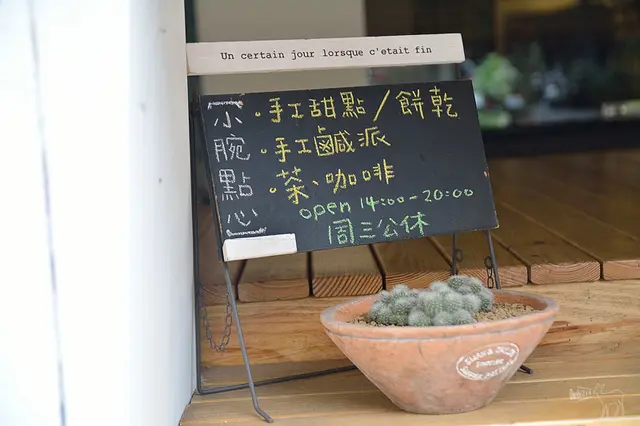 Un certain jour lorsque c'etait fin
小腕點心
·手工甜點/餅乾
·手工鹹派
·茶、咖啡
open 14:00-20:00
周三公休